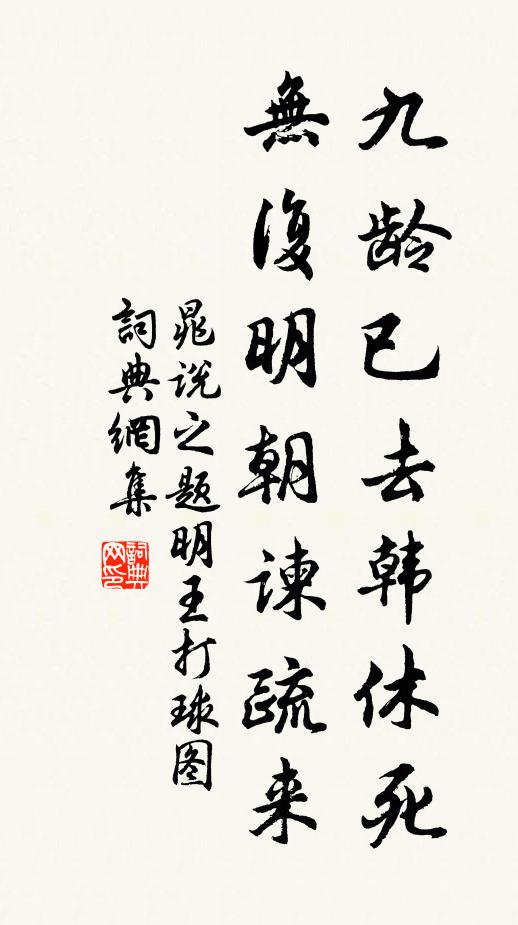 九龄已去韩休死
無復明朝谏疏来
晁说之题明王打球图
詞典網集
詞典网印